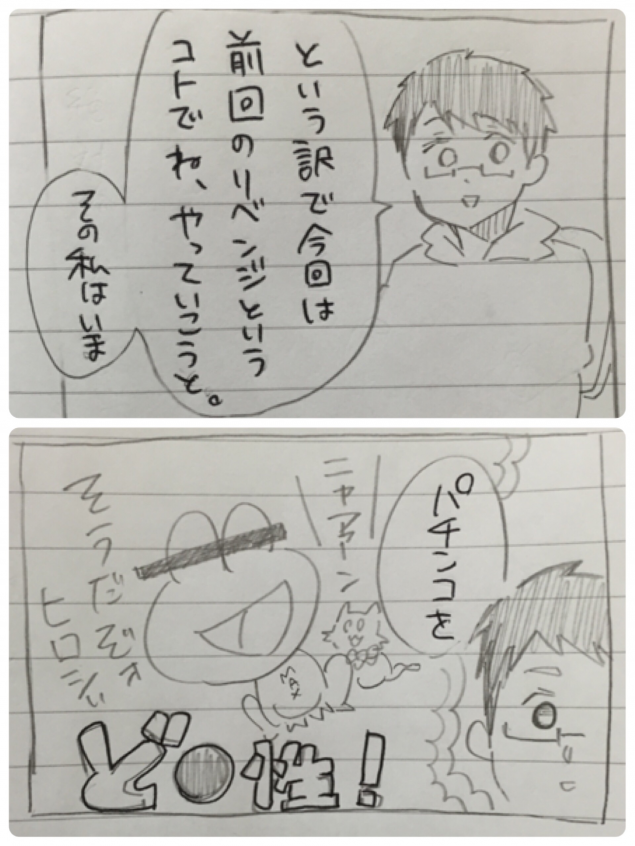 という訳で今回は
前回のリベンジという
コトでね、やっていこうと。
その私はいま
パチンコを
ニャアーン
MAX
そうだぞォ
ヒロシ
ど●性!